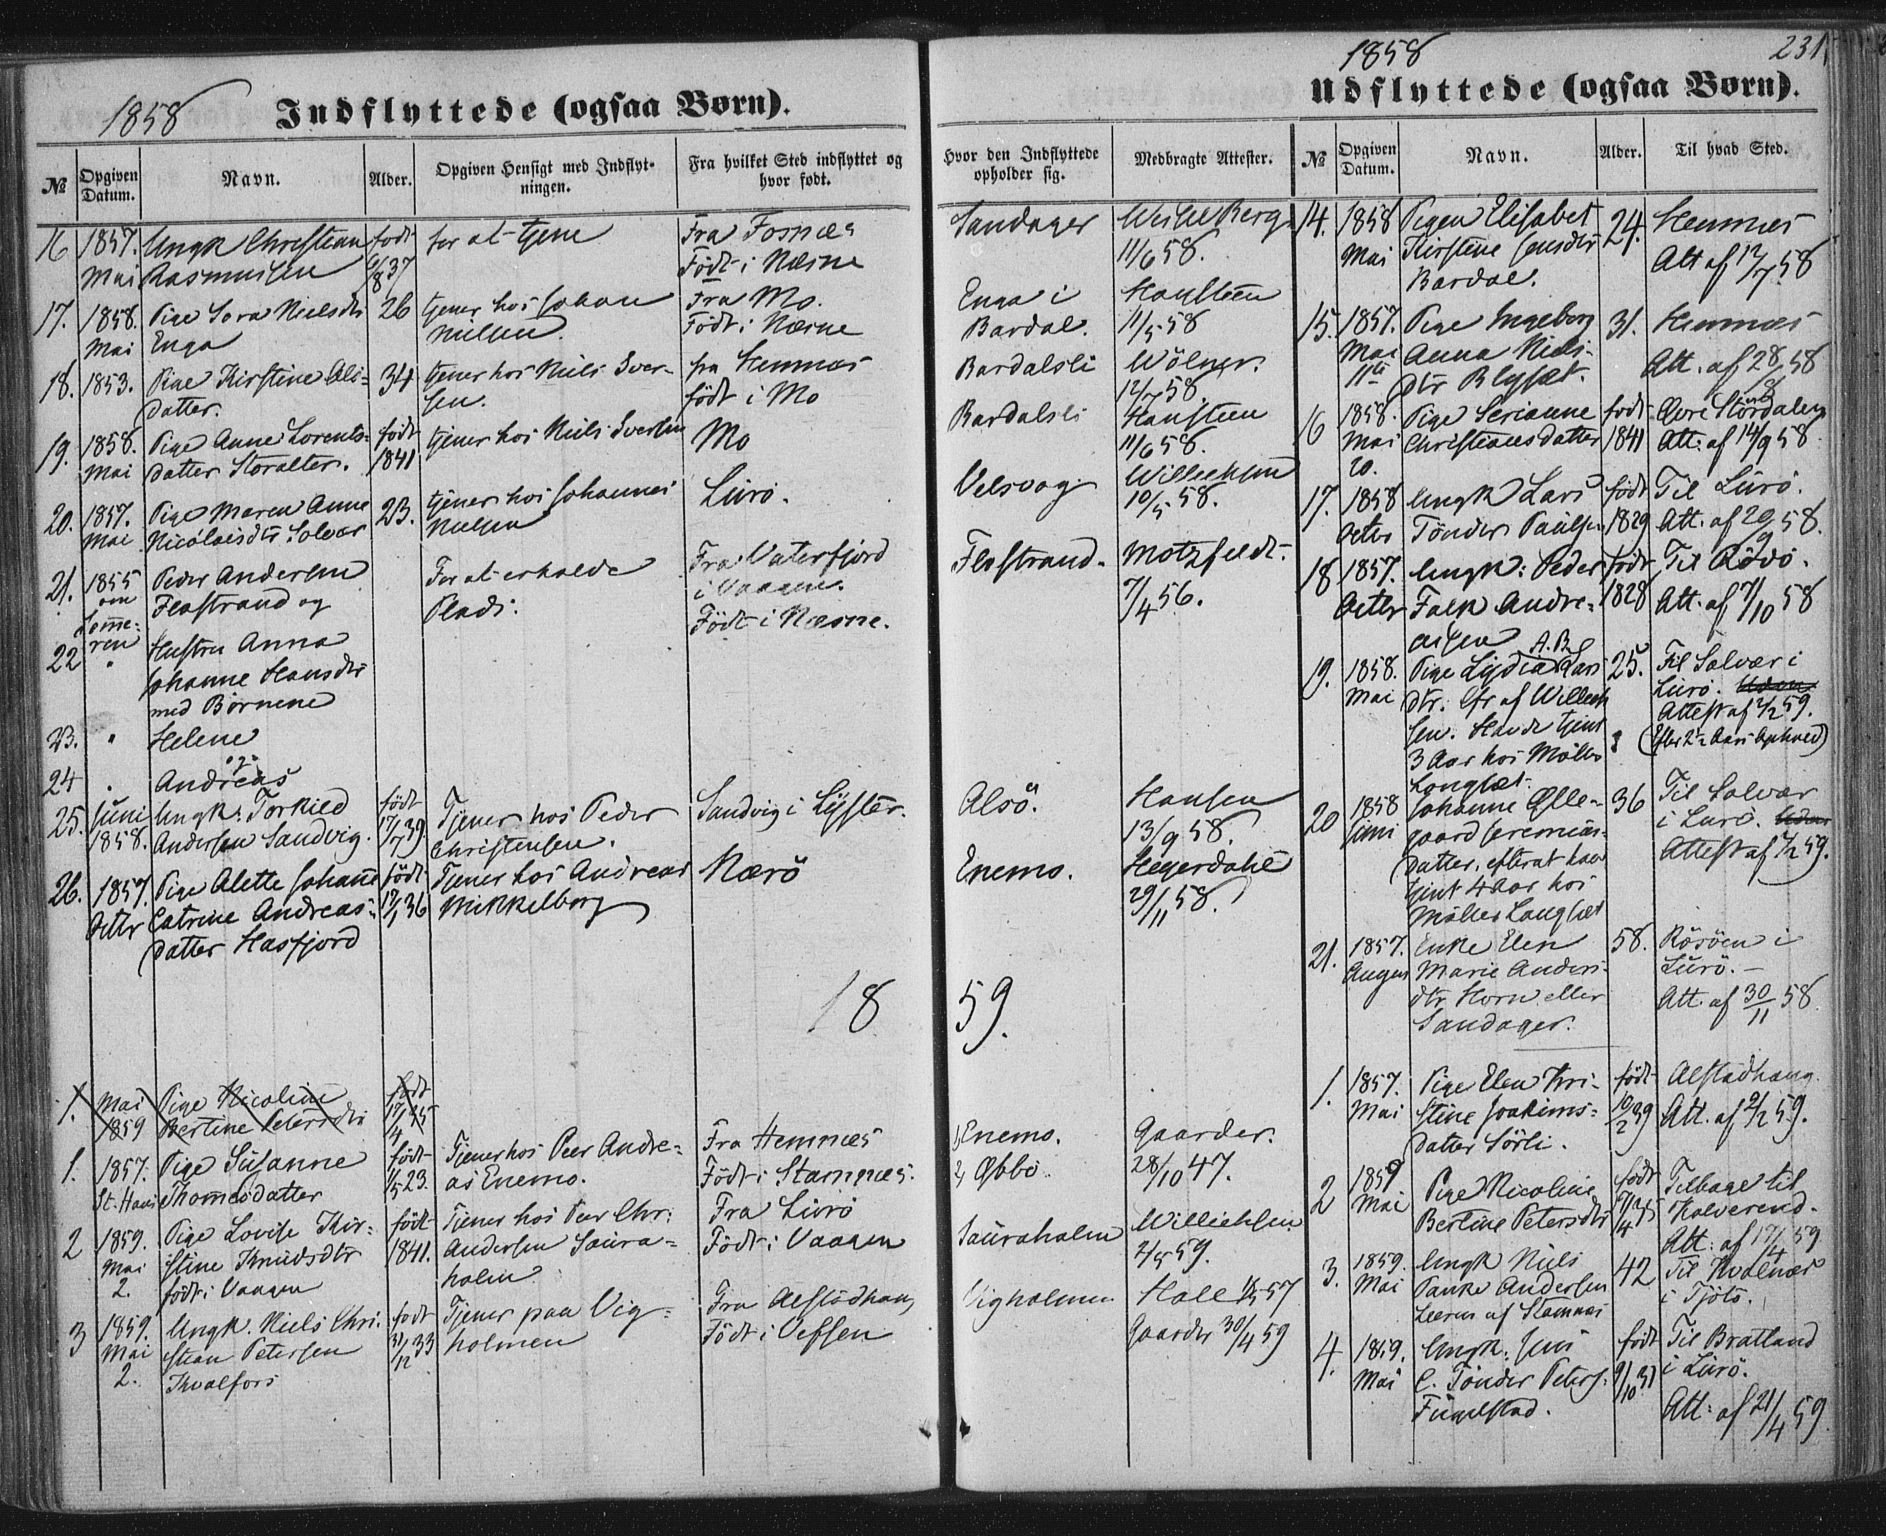 1858
Indflyttede (ogsaa Børn).
№
Opgiven Datum.
Navn.
Alder.
Opgiven Hensigt med Indflytningen.
Fra hvilket Sted indflyttet og hvor født.
Hvor den Indflyttede opholder sig.
Medbragte Attester.
16 1857. Ungk Christian født for at tjene Fra Fosnæs Sandager
Mai Rasmussen 37 Født i Næsne 11/6 58.
17. 1858. Pige Nielsdtr 26 tjener hos Johan Fra Mo. Enga i Hansteen
Mai Enga Nielsen. Født i Næsne Bardal. 11/5 58
18. 1853. Pige Kirstine Ols- 34 tjener hos Niels Iver- fra Hemnæs Bardalsli Wölner.
datter. sen. født i Mo 12/7 58.
19. 1858. Pige Anne Lorents- født tjener hos Niels Iversen Mo Bardalsli Hansteen
Mai datter Storalter. 1841 11/6 58.
20. 1857. Pige Maren Anne 23. tjener hos Johannes Lurö. Velsvag Willichsen
Mai Nicolaisdtr Solvær Nielsen 10/5 58.
21. 1855 Peder Andersen For at erholde Fra Vaterfjord Flostrand. Motzfeldt
om Flostrand og Plads. i Vaagen. 7/4 56.
Somme- Født i Næsne.
ren
22 " Hustru Anna
Johanne Hansdtr
med Børnene
23. " Helene
og
24 " Andreas
25. Juni Ungk: Torkild født Tjener hos Peder Sandvig i Alsö. Hansen
1858. Andersen Sandvig. 17/7 39. Christensen. 13/9 58.
26. 1857. Pige Alette Johanne født Tjener hos Andreas Nærö Enemo. Heyerdahl
Octbr Catrine Andreas- 17/1 36 Mikkelborg 29/11 58.
datter Hasfjord
1859.
1. Mai Pige Nicoline født
1859 Bertine Petersdtr 17/4 35
1. 1857. Pige Susanne født Tjener hos Peer Andre- Fra Hemnæs 1, Enemo. Gaarder.
St. Hans Thomesdatter 1/5 23. as Enemo. Født i Stamnæs. 2, Øbbö 28/10 47.
2 1859. Pige Lovise Kir- født Tjener hos Peer Chr: Fra Lurö Sauraholm Willichsen
Mai stine Knudsdtr 1841. Andersen Saura- Født i Vaagen 2/5 59.
2. født i Vaagen holm
3 1859. Ungk. Niels Chri- født Tjener paa Vig- Fra Alstadhaug Vigholmen Hall 57
Mai stian Petersen 31/12 33 holmen Født i Vefsen Gaarder 30/4 59
2. Kvalfors
1858
231.
Udflyttede (ogsaa Børn).
№
Opgiven Datum.
Navn.
Alder.
Til hvad Sted.
14. 1858 Pigen Elisabet 24. Hemnæs
Mai Kirstine Jensdtr Att af 12/7 58
Bardal.
15. 1857. Pige Ingeborg 31. Hemnæs
Mai Anna Niels- Att. af 28/8 58
11te dtr Blysæt.
16 1858. Pige Serianne født Øvre Størdalen
Mai Christiansdatter 1841 Att: af 14/9 58
20.
17. 1858 Ungk Lars født Til Lurö.
Octbr Tönder Paulsen 1829 Att. af 20/9 58.
18 1857. Ungk: Peder født Til Rödö.
Octbr Falk Andre- 1828 Att. af 7/10 58
asen A.B.
19. 1858. Pige Lydia Lars 25. Til Solvær i
Mai dtr. Willich Lurö. Uden
sen. Havde tjent Attest af 2/2 59.
3 Aar hos Möller (Efter 2½ Aars Ophold)
Langsæt.
20 1858 Johanne Ølle- 36 Til Solvær
Juni gaard Jeremias- i Lurö. Uden
datter, efterat have Attest af 2/2 59.
tjent 4 Aar hos
Möller Langsæt
21. 1857. Enke Elen 58. Rösöen i
August Marie Anders- Lurö. —
dtr Horn eller Att. af 30/11 58
Sandager.
1. 1857. Pige Elen Kri- født Alstadhaug
Mai stine Joakims- 10/2 39 Att. af 9/2 59.
datter Sörli.
2 1859 Pige Nicoline født Tilbage til
Mai Bertine Petersdtr 17/4 35 Kolverend.
Att: af 17/4 59
3. 1859. Ungk Niels 42 Til Kvalnæs
Mai Panke Andersen i Tjötö.
Leerm af Stamnæs
4. 1859. Ungk: Jens født Til Bratland
Mai C. Tönder Peters. 9/10 31 i Lurö.
Fugelstad. Att: af 21/4 59